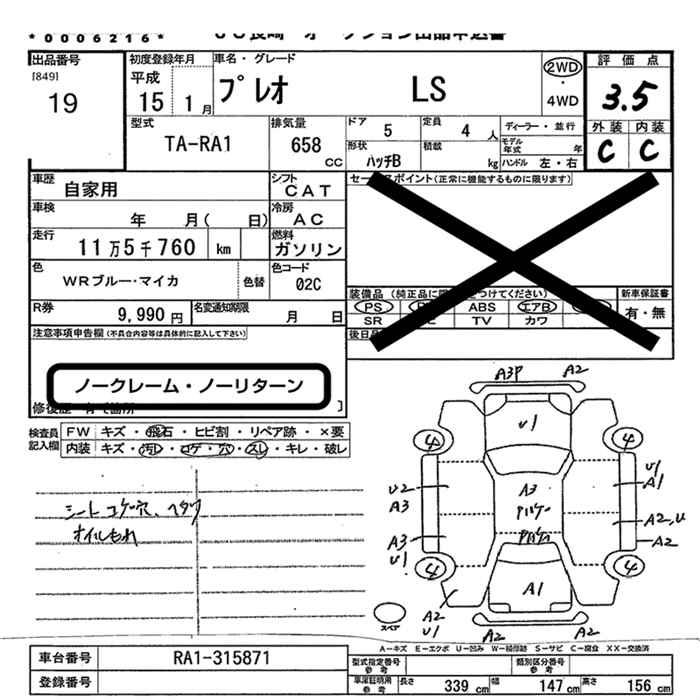 *0006216*
出品番号
[849]
19
初度登録年月
平成
15 1 月
車名・グレード
プレオ LS
2WD
・
4WD
評価点
3.5
外装 内装
C C
型式
TA-RA1
排気量
658
cc
ドア 5
定員 4 人
ディーラー・並行
モデル年式 年
形状 ハッチB
積載 kg
ハンドル 左・右
車歴 自家用
シフト CAT
車検 年 月( 日)
冷房 AC
走行 11万5千760 km
燃料 ガソリン
色 WRブルー・マイカ 色替
色コード 02C
R券 9,990 円
名変通知期限 月 日
注意事項申告欄 (不具合内容等は具体的に記入して下さい)
ノークレーム・ノーリターン
ポイント(正常に機能するものに限ります)
装備品 (純正品に つけてください)
PS ABS エアB
SR TV カワ
新車保証書
有・無
後日
検査員
記入欄
FW キズ・飛石・ヒビ割・リペア跡・×要
内装 キズ・汚れ・コゲ・穴・スレ・キレ・破レ
シート コゲ穴、ヘタリ
オイルもれ
A3P A2
U1
4 4
U2 A3 U1
A3 アバゲー A1
A3 A2,U
U1 A2
4 4
A1
A2
U1
スペア
A2 A2
A-キズ E-エクボ U-凹み W-補修跡 S-サビ C-腐食 XX-交換済
車台番号 RA1-315871
登録番号
型式指定番号
参考
類別区分番号
参考
車庫証明用
参考
長さ 339 cm 幅 147 cm 高さ 156 cm